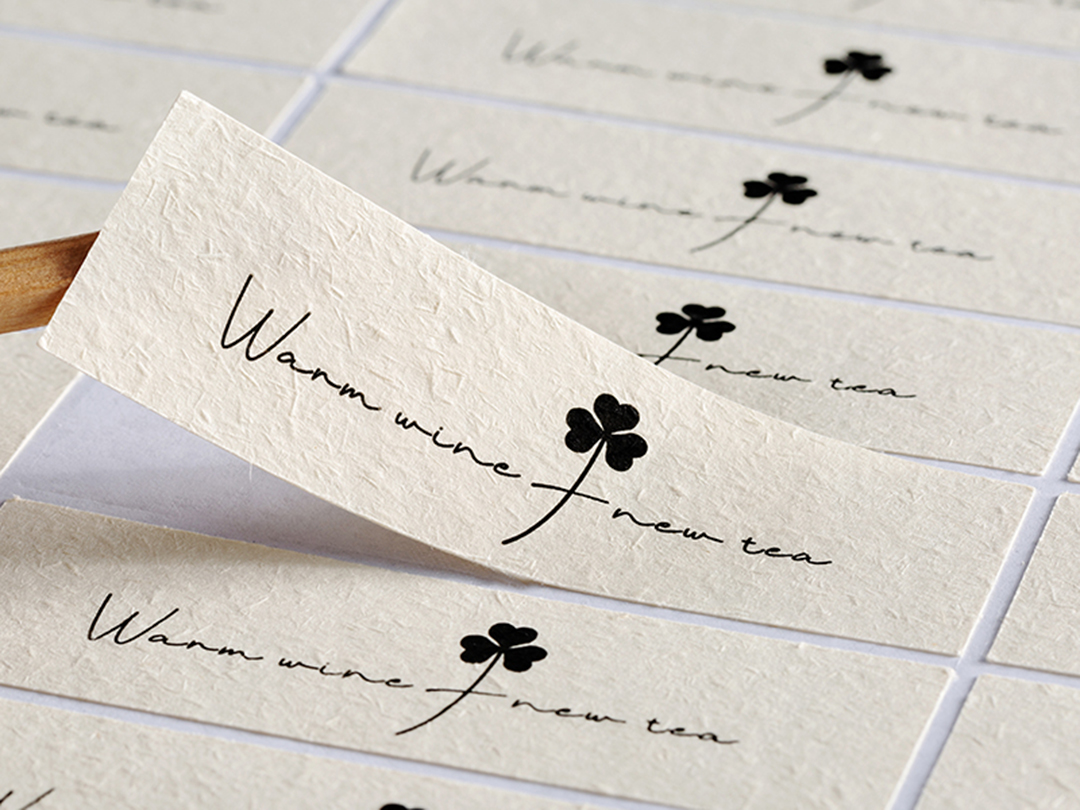 tea
Warm wine new tea
tea
Warm wine new tea
new tea
Warm wine new tea
Warm wine new tea